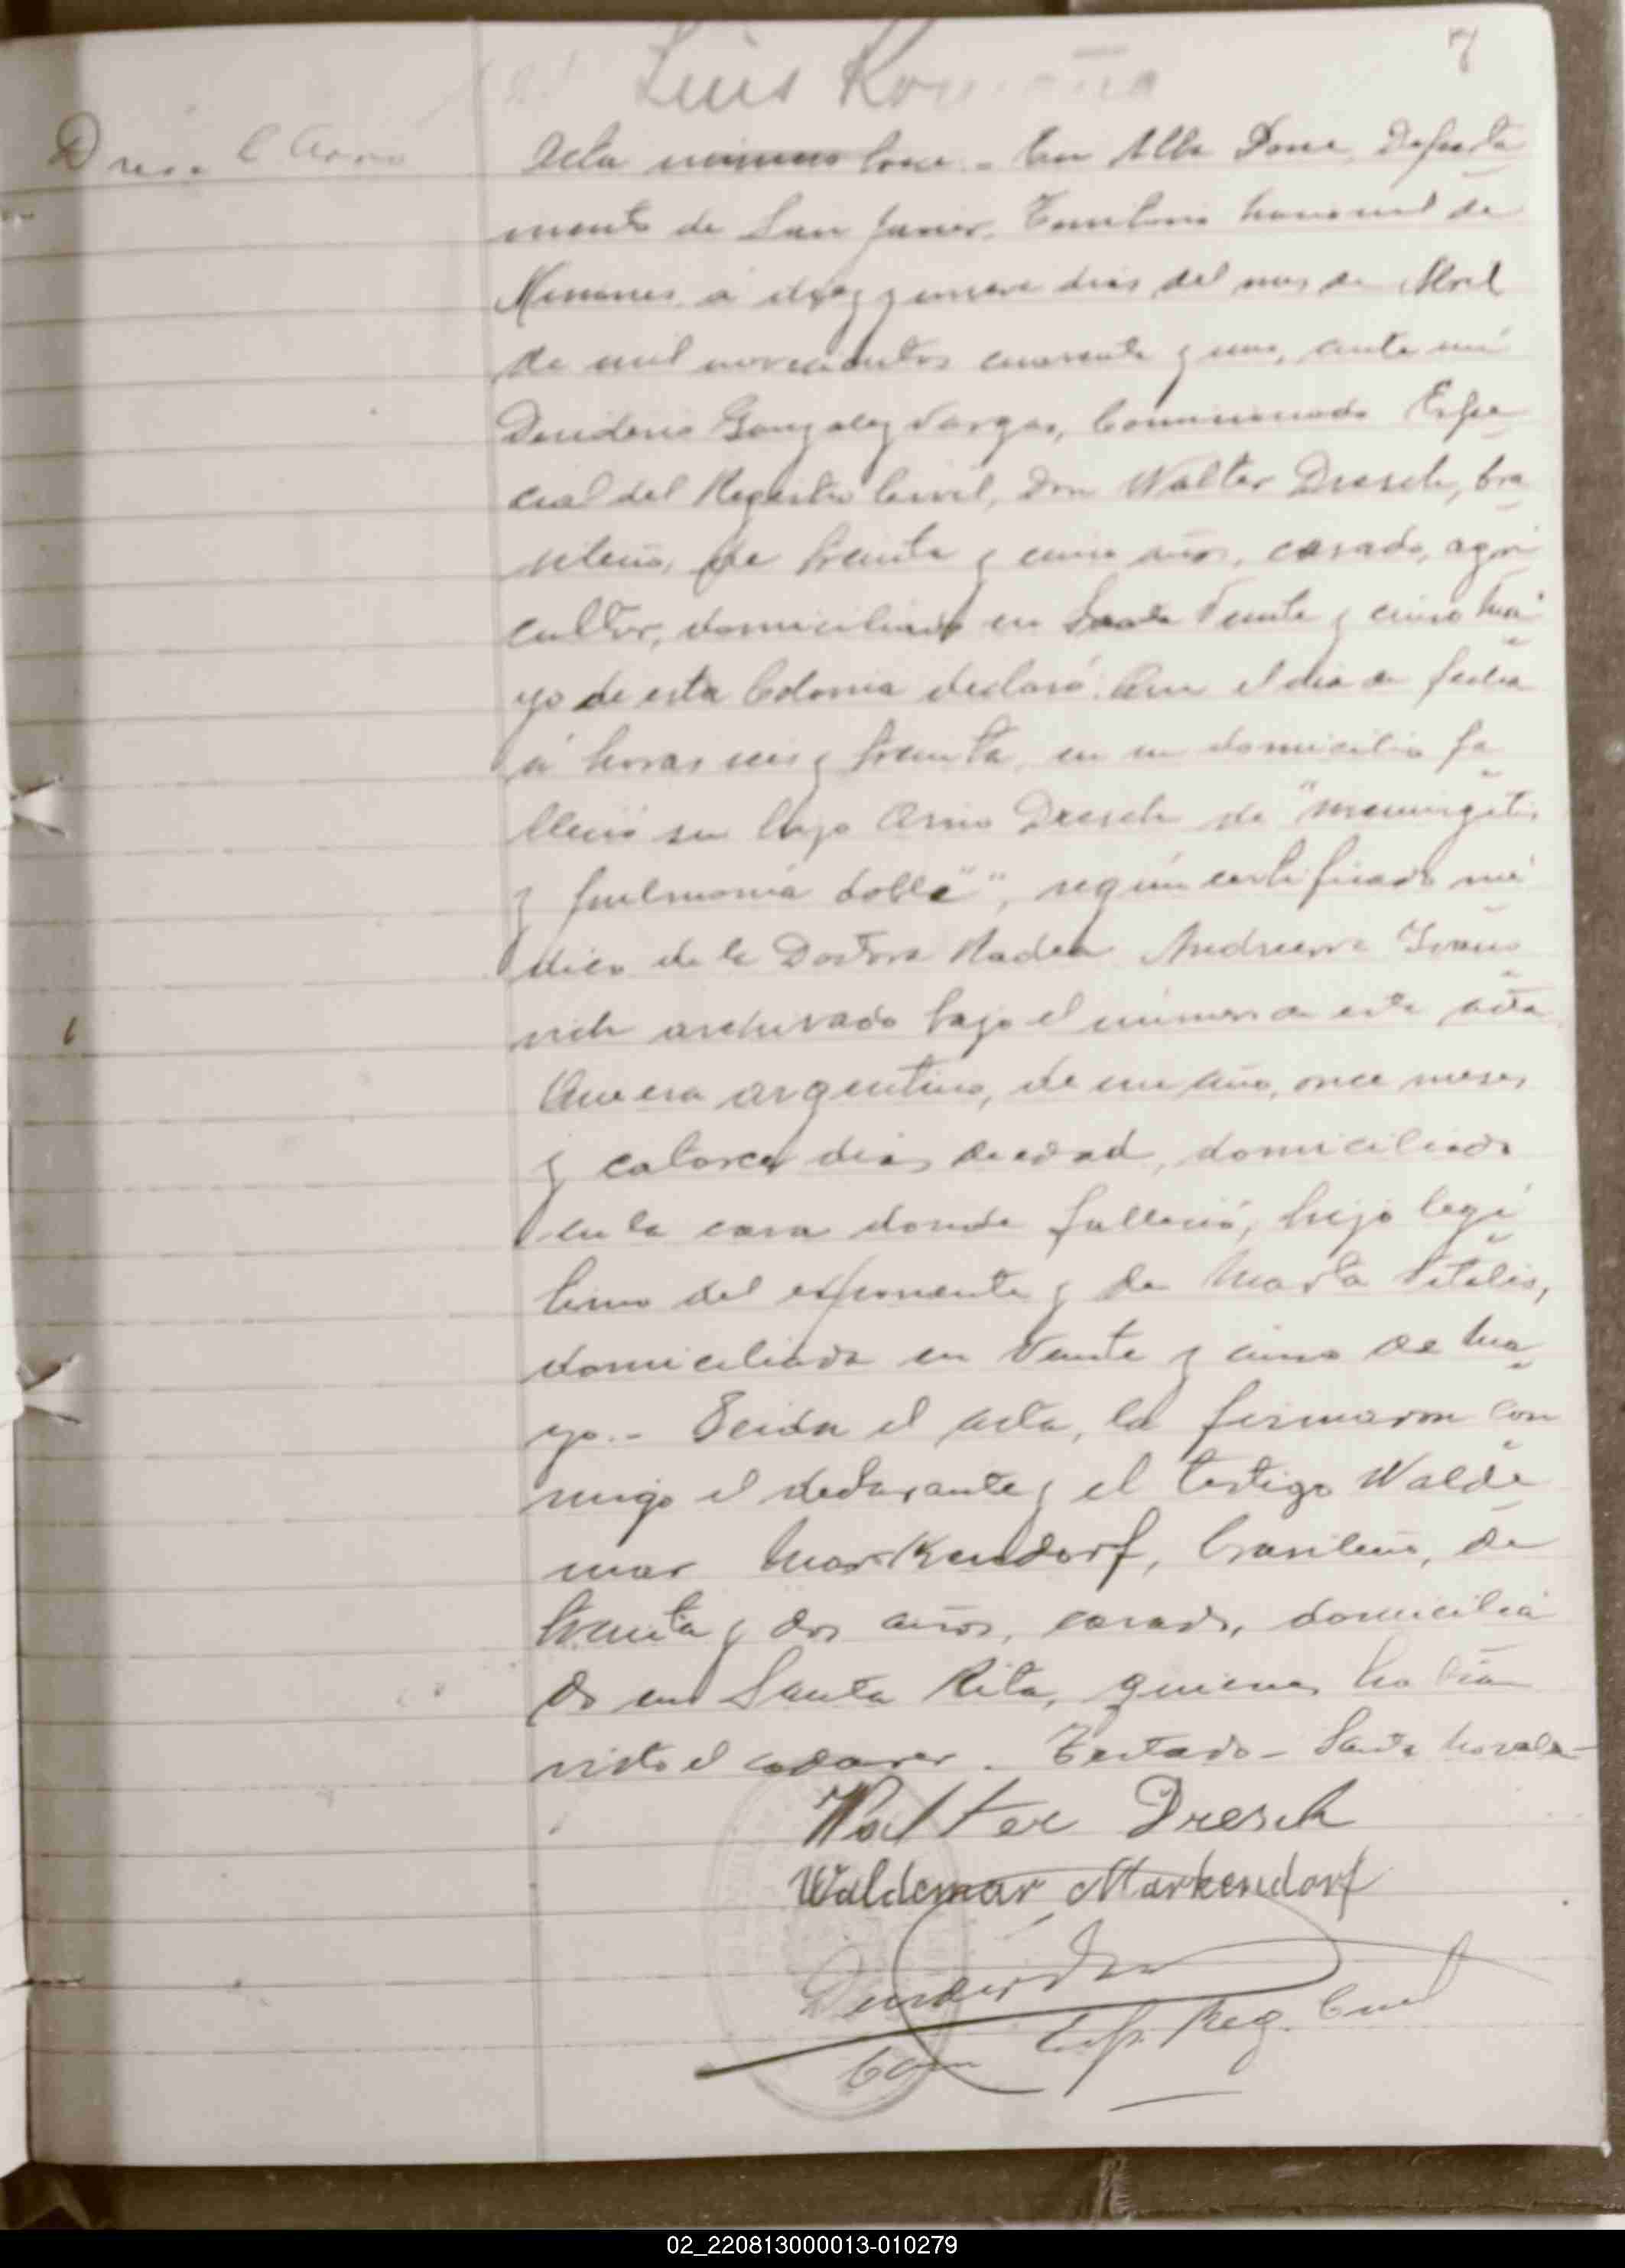 7
Luis
Dresch Arno
Acta número trece. En Alba Posse, Departa
mento de San Javier, Territorio Nacional de
Misiones, a diez y nueve dias del mes de Abril
de mil novecientos cuarenta y uno, ante mi
Desiderio Gonzalez Vargas, Comisionado Espe
cial del Registro Civil, Don Walter Dresch, bra
sileño, de treinta y cinco años, casado, agri
cultor, domiciliado en Santa Veinte y cinco Ma
yo de esta Colonia declaró: Que el dia de fecha
á horas seis y treinta, en su domicilio fa
lleció su hijo Arno Dresch de "meningitis
y pulmonia doble", según certificado mé
dico de la Doctora Nadea
vich archivado bajo el número de este acta
Que era argentino, de un año, once meses
y catorce dias de edad, domiciliado
en la casa donde falleció, hijo legi
timo del exponente y de Marta Vitalis,
domiciliada en Veinte y cinco de Ma
yo.- Leida el acta, la firmaron con
migo el declarante y el testigo Walde
mar Markendorf, brasileño, de
treinta y dos años, casado, domicilia
do en Santa Rita, quienes habian
visto el cadaver. Testado - Santa no vale -
Walter Dresch
Waldemar Markendorf
Com Esp. Reg. Civil
02_220813000013-010279